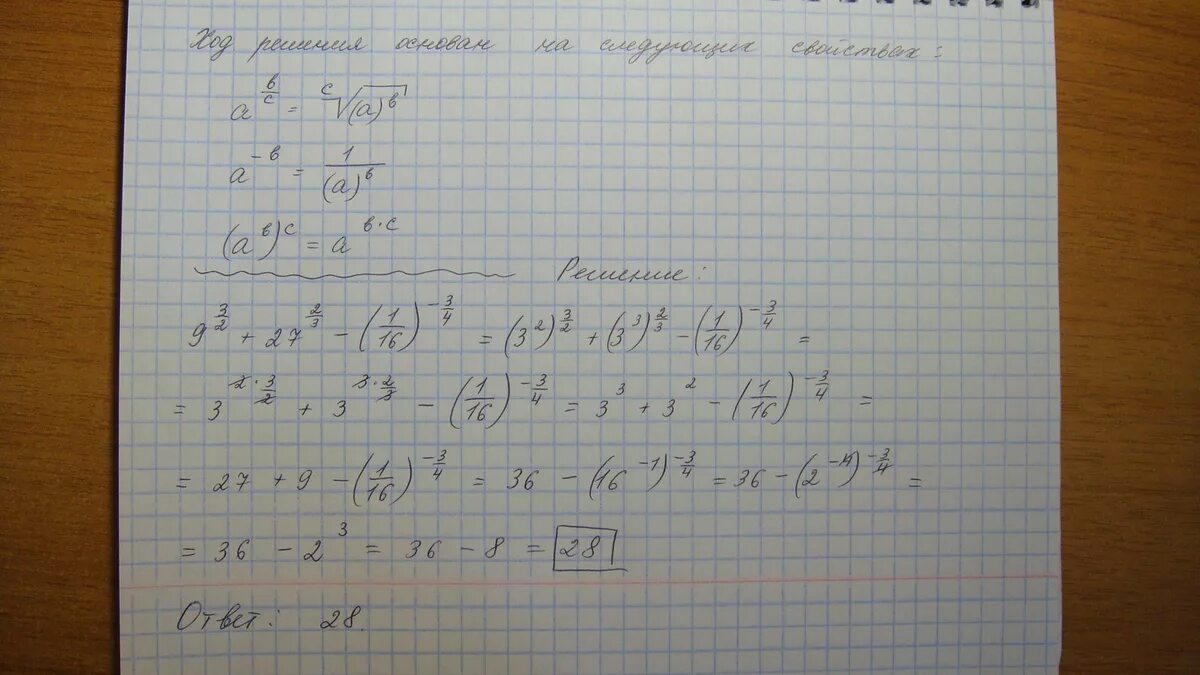 Ход решения основан на следующих свойствах:
a^(в/с) = ᶜ√(a)^в
a^(-в) = 1/(a)^в
(a^в)^с = a^(в·с)
Решение:
9^(3/2) + 27^(2/3) - (1/16)^(-3/4) = (3^2)^(3/2) + (3^3)^(2/3) - (1/16)^(-3/4) =
= 3^(2·3/2) + 3^(3·2/3) - (1/16)^(-3/4) = 3^3 + 3^2 - (1/16)^(-3/4) =
= 27 + 9 - (1/16)^(-3/4) = 36 - (16^(-1))^(-3/4) = 36 - (2^(-4))^(-3/4) =
= 36 - 2^3 = 36 - 8 = 28
Ответ: 28.